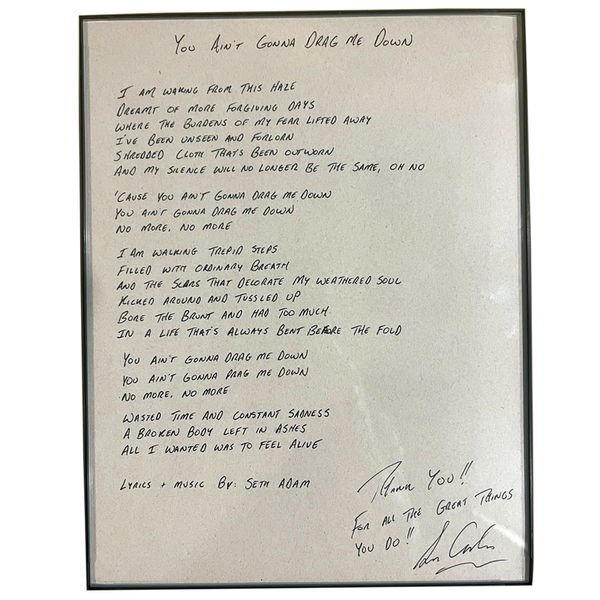 You Ain't Gonna Drag Me Down
I am waking from this haze
Dreamt of more forgiving days
Where the burdens of my fear lifted away
I've been unseen and forlorn
Shredded cloth that's been outworn
And my silence will no longer be the same, oh no
'Cause you ain't gonna drag me down
You ain't gonna drag me down
No more, no more
I am walking trepid steps
Filled with ordinary breath
And the scars that decorate my weathered soul
Kicked around and tussled up
Bore the brunt and had too much
In a life that's always bent before the fold
You ain't gonna drag me down
You ain't gonna drag me down
No more, no more
Wasted time and constant sadness
A broken body left in ashes
All I wanted was to feel alive
Lyrics + music by: Seth Adam
Thank you!!
For all the great things
you do!!